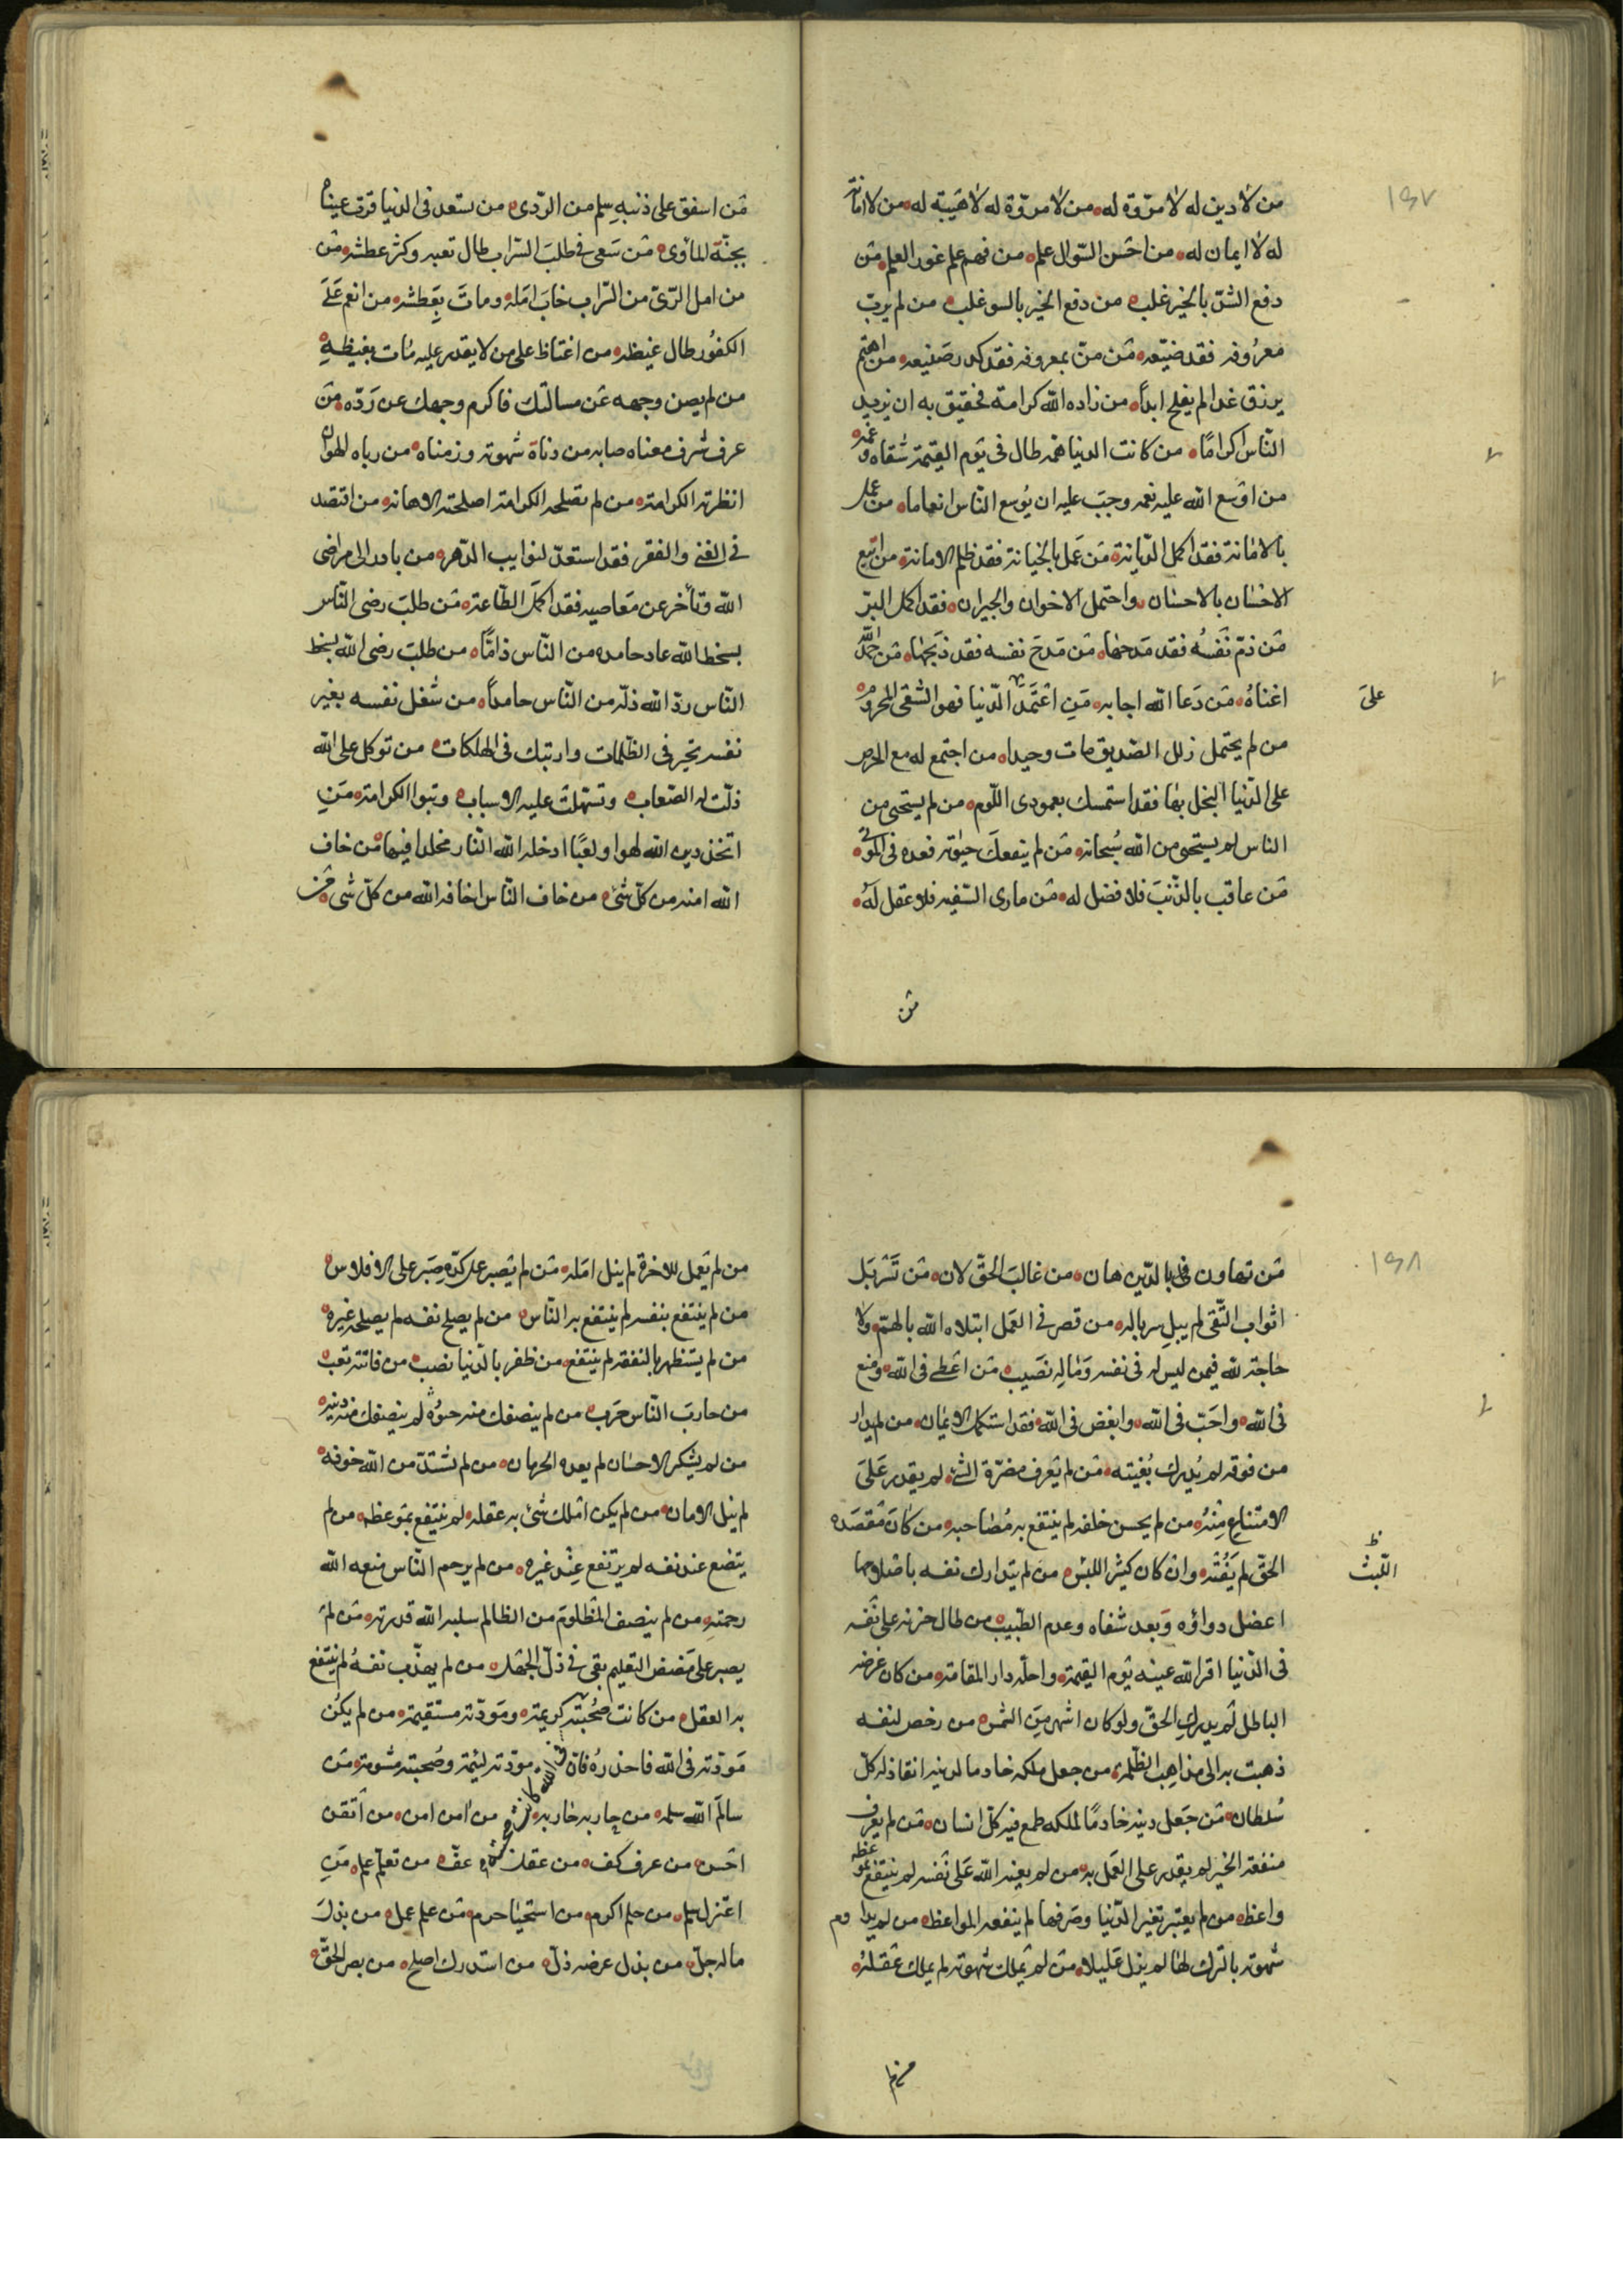 ١٩٧
من لا دين له لا مروّة له من لا مروّة له لا هيبة له من لا امانة
له لا ايمان له من احسن السّوال علم من فهم علم غور العلم من
دفع الشرّ بالخير غلب من دفع الخير بالسو غلب من لم يربّ
معرُوفه فقد ضيّعه من منّ بمعروفه فقد كدر صنيعه من اهتم
برزق غدا لم يفلح ابداً من زاده الله كرامة فحقيق به ان يزيد
النّاس اكرامًا من كانت الدنيا همه طال فى يَوم القيمة شقاه و غمّه
من اوسَع الله عليه نعمه وجبَ عليه ان يُوسع النّاس انعاما من عمل
بالامانة فقد اكمل الدّيانة مَن عَمل بالخيانة فقد ظلم الامانة من اتبع
الاحسٰان بالاحسٰان واحتمل الاخوان والجيران فقد اكمل البرّ
مَن ذمّ نَفسُه فقد مَدحهٰا مَن مَدحَ نفسه فقد ذبَحهٰا مَن حمد الله
اغناهُ مَن دَعا الله اجابه مَنِ اعتَمَدَ الدّنيا فهو الشّقى المحرومُ
علىَ
من لم يحتمل زلل الصّديق مات وحيدا من اجتمع له مع الحرص
على الدّنيا البخل بهٰا فقد استمسك بعمودى اللّوم من لم يستحى من
الناس لم يستحى من الله سُبحانه مَن لم ينفعكَ حيٰوته فعده فى الموتى
مَن عاقب بالذّنبَ فلا فضل له مَن مارى السّفيه فلا عقل لَهُ
من
مَن اسفق على ذنبهِ سلم من الرّدى من ستعد فى الدنيا قرت عيناه
بجنّة المأوى مَن سَعى فى طلبَ السّراب طال تعبه وكثر عطشه مَن
من امل الرّىّ من السّراب خابَ امَله وماتَ بِعَطشه من انعم عَلَى
الكفُور طال غيظه من اغتاظ على من لا يقدر عليه مات بغيظهِ
من لم يصن وجهه عَن مسالتك فاكرم وجهك عن رَدّه مَن
عرف شرف معناه صابه من دناة شهوته وزمناه من رباه الهوان
انظرته الكرامة من لم تصلحه الكرامة اصلحته الاهانه من اقتصد
فى الغنى والفقر فقد استعدّ لنوايب الدّهر من بادر الى مراضى
الله وتأخر عن مَعاصيه فقد اكمَل الطّاعة مَن طلبَ رضى النّاس
بسخط الله عاد حامده من النّاس ذامًّا من طلبَ رضى الله بسخط
النّاس ردّ الله ذلّه من النّاس حامداً من شغل نفسه بغير
نفسه تحير فى الظّلمات وارتبك فى الهلكات من توكل على الله
ذلّت له الصّعاب وتسهّلت عليه الاسباب وتبوا الكرامة مَنِ
اتخذ دين الله لهوا ولعبًا ادخله الله النّار مخلدا فيها مَن خاف
الله امنه من كلّ شئ من خاف النّاس اخافه الله من كلّ شى من
١٩٨
مَن تهاون بالدّين هان من غالبَ الحقّ لان مَن تَسَربَل
اثواب التّقى لم يبلِ سرباله من قصر فى العَمل ابتلاه الله بالهمّ ولا
حٰاجة لله فيمن ليس له فى نفسه وَمٰالِه نصَيب مَن اعَطى فى الله ومنع
فى الله واحَبّ فى الله وابغض فى الله فقد استكمل الايمٰان من لم يدار
من فوقه لم يُدرك بُغيته مَن لم يَعرف مضرّة الشئ لم يقدر عَلىَ
الامتناع مِنْهُ من لم يحسن خلقه لم ينتفع به مُصٰاحبه من كانَ مَقصَده
الحقّ لم يَفُتْه وان كان كثير اللبْس من لم يتدارك نفسه باصلاحها
ظ
اللّبث
اعضل دواؤه وَبعد شفاه وعدم الطّبيب من طال حزنه على نَفسه
فى الدّنيا اقر الله عينه يَوم القيمة واحلّه دار المقامة من كان غرضه
الباطل لَم يدركِ الحقّ ولو كان اشهر مِنَ الشمس من رخص لنفسه
ذهبت به الى مذاهِب الظّلمة من جعل ملكه خادما لدينه انقاد له كلّ
سُلطان مَن جَعل دينه خادمًا لملكه طمع فيه كلّ انسان مَن لم يعرف
منفعة الخير لم يقدر على العَمل به من لم يعنه الله عَلى نَفسه لم ينتفع بموعظة
واعظ من لم يعتبر بتغير الدّنيا وصَرفها لم ينفعه المواعظ من لم يداوم
شهوته بالترك لهٰا لم يزل عَليلا من لم يَملك شهوته لم يملك عَقلهُ
من لم
من لم يَعمل للاخرة لم ينل امَله مَن لم يَصبر على كدّه صَبر على الافلاس
من لم ينتفع بنفسه لم ينتفع به النّاس من لم يصلح نفسه لم يصلح غيره
من لم يستظهر بالنفقة لم ينتفع من ظفر بالدّنيا نصب من فاتته تعب
من حاربَ النّاس حَرب من لم ينصفك منه حيٰوُه لم ينصفك منه دينه
من لم يشكر الاحسٰان لم يعده الحرمان من لم تشتدّ من الله خوفه
لم ينل الامان من لم يكن املك شَئ به عقله لم ينتفع بمَوعظه من لم
يتضع عند نفسه لم يرتفع عِنْد غيره من لم يرحم النّاس منعه الله
رحمته من لم ينصف المظلومَ من الظالم سلبه الله قدرته مَن لَم
يصبر على مَضض التعليم بقى فى ذلّ الجهل من لم يهذّب نفسهُ لم ينتفع
به العقل من كانت صُحبته فى الله كانت صحبته كريمة ومَوَدّته مستقيمة من لم يكُن
مَودّته فى الله فاحذرهُ فانّ مودّته لئيمة وصُحبته مشومة مَن
سالَم الله سلمه من حاربه حٰاربه من امن امن من اتقن
احَسن من عرف كف من عقل عفّ من تعلّم علم مَنِ
اعتزل سلم من حلم اكرم من استحيٰا حرم مَن علم عمل من بذلَ
ماله جلّ من بذل عرضه ذلّ من استدرك اصلح من بصر الحقّ